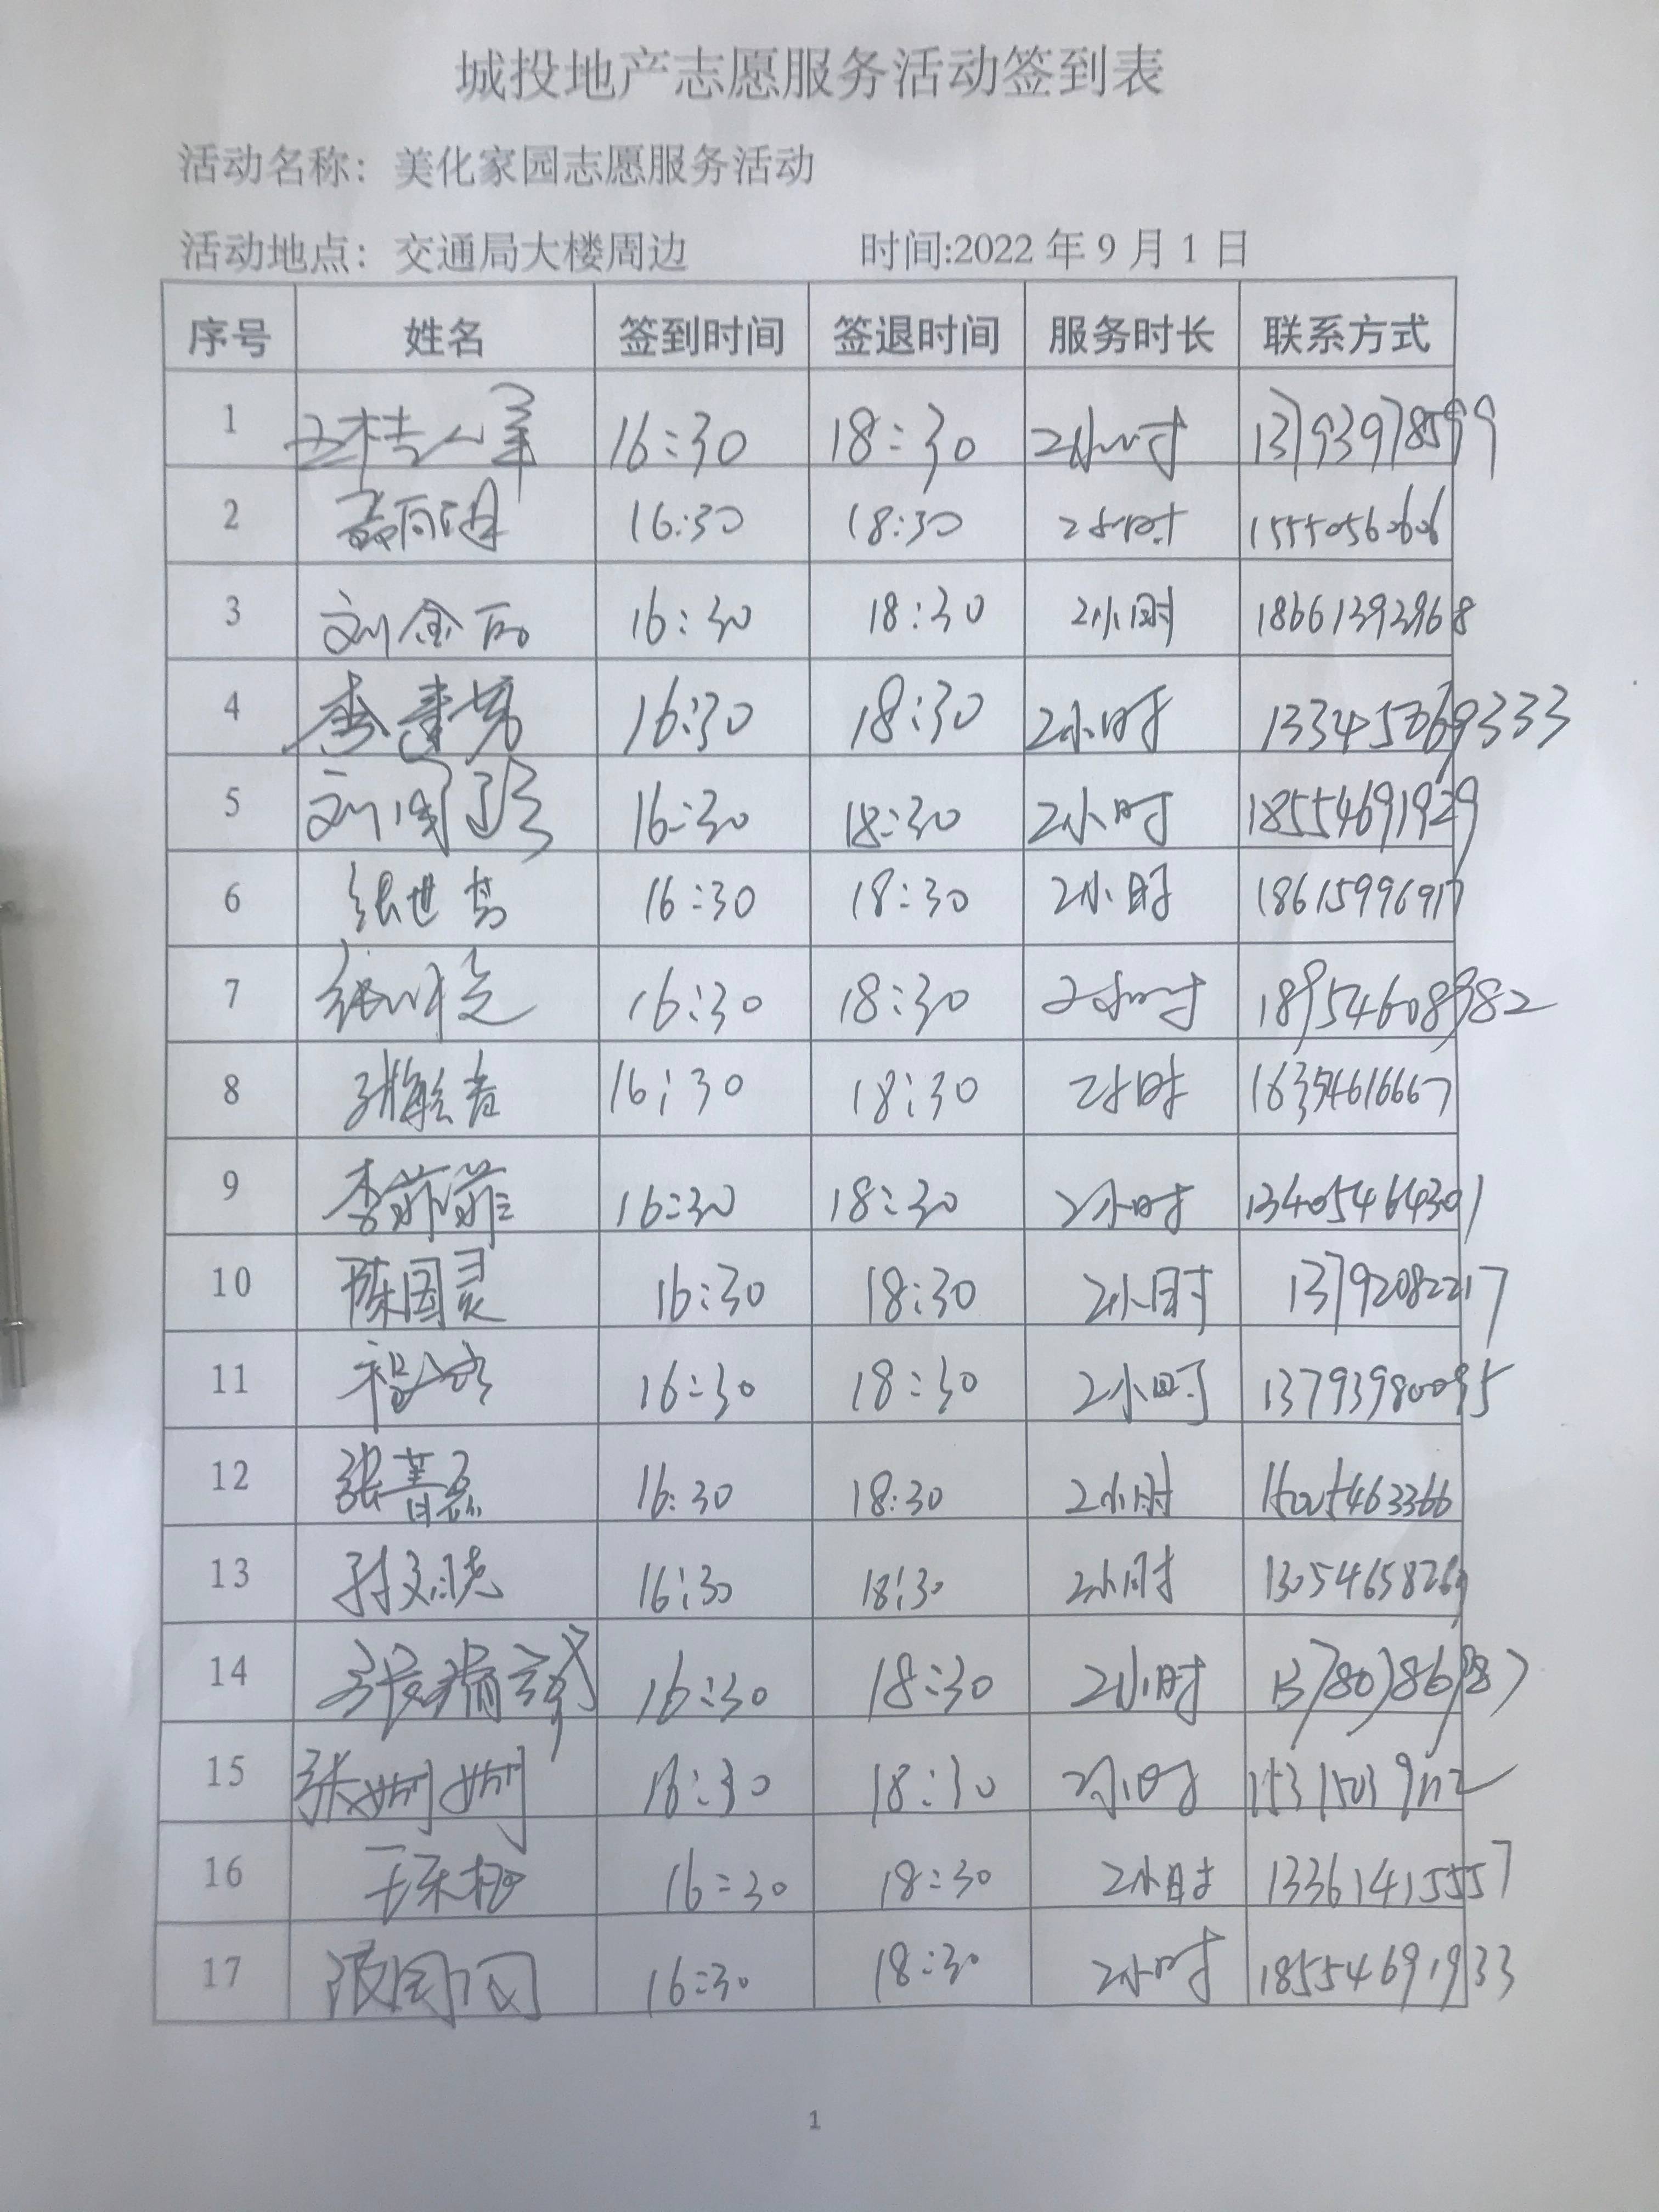 城投地产志愿服务活动签到表
活动名称：美化家园志愿服务活动
活动地点：交通局大楼周边 时间:2022 年 9 月 1 日
序号 姓名 签到时间 签退时间 服务时长 联系方式
1 16:30 18:30 2小时 13793978599
2 16:30 18:30 2小时 15550560606
3 刘金 16:30 18:30 2小时 18661392968
4 16:30 18:30 2小时
5 刘 16:30 18:30 2小时 18554691929
6 张世 16:30 18:30 2小时 18615996917
7 张 16:30 18:30 2小时 18954608982
8 16:30 18:30 2小时
9 李菲菲 16:30 18:30 2小时 13405464301
10 陈国灵 16:30 18:30 2小时 13792082217
11 16:30 18:30 2小时 13793980095
12 张 16:30 18:30 2小时 15005463366
13 孙文晓 16:30 18:30 2小时 13054658269
14 张瑞 16:30 18:30 2小时 13780786987
15 张娜娜 16:30 18:30 2小时
16 16:30 18:30 2小时 13361415557
17 16:30 18:30 2小时 18554691933
1